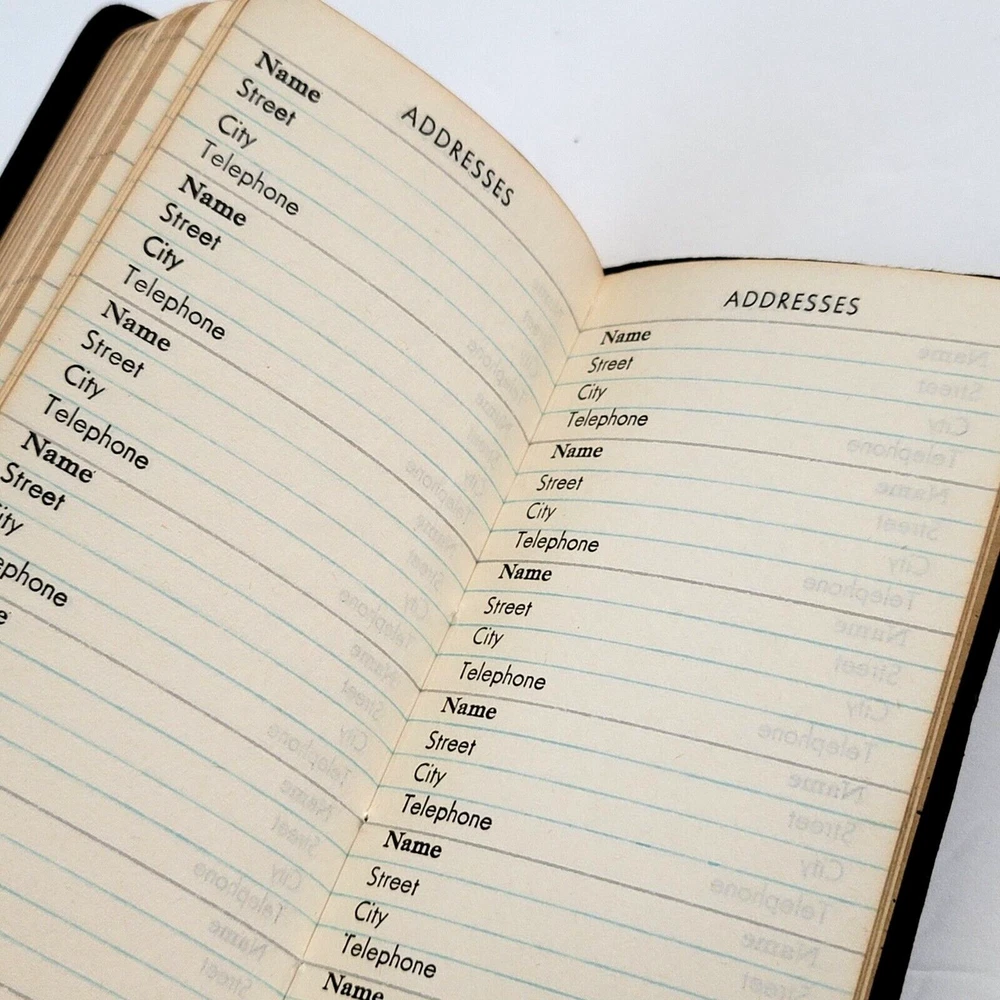 ADDRESSES
Name
Street
City
Telephone
Name
Street
City
Telephone
Name
Street
City
Telephone
Name
Street
ity
ephone
e
ADDRESSES
Name
Street
City
Telephone
Name
Street
City
Telephone
Name
Street
City
Telephone
Name
Street
City
Telephone
Name
Street
City
Telephone
Name